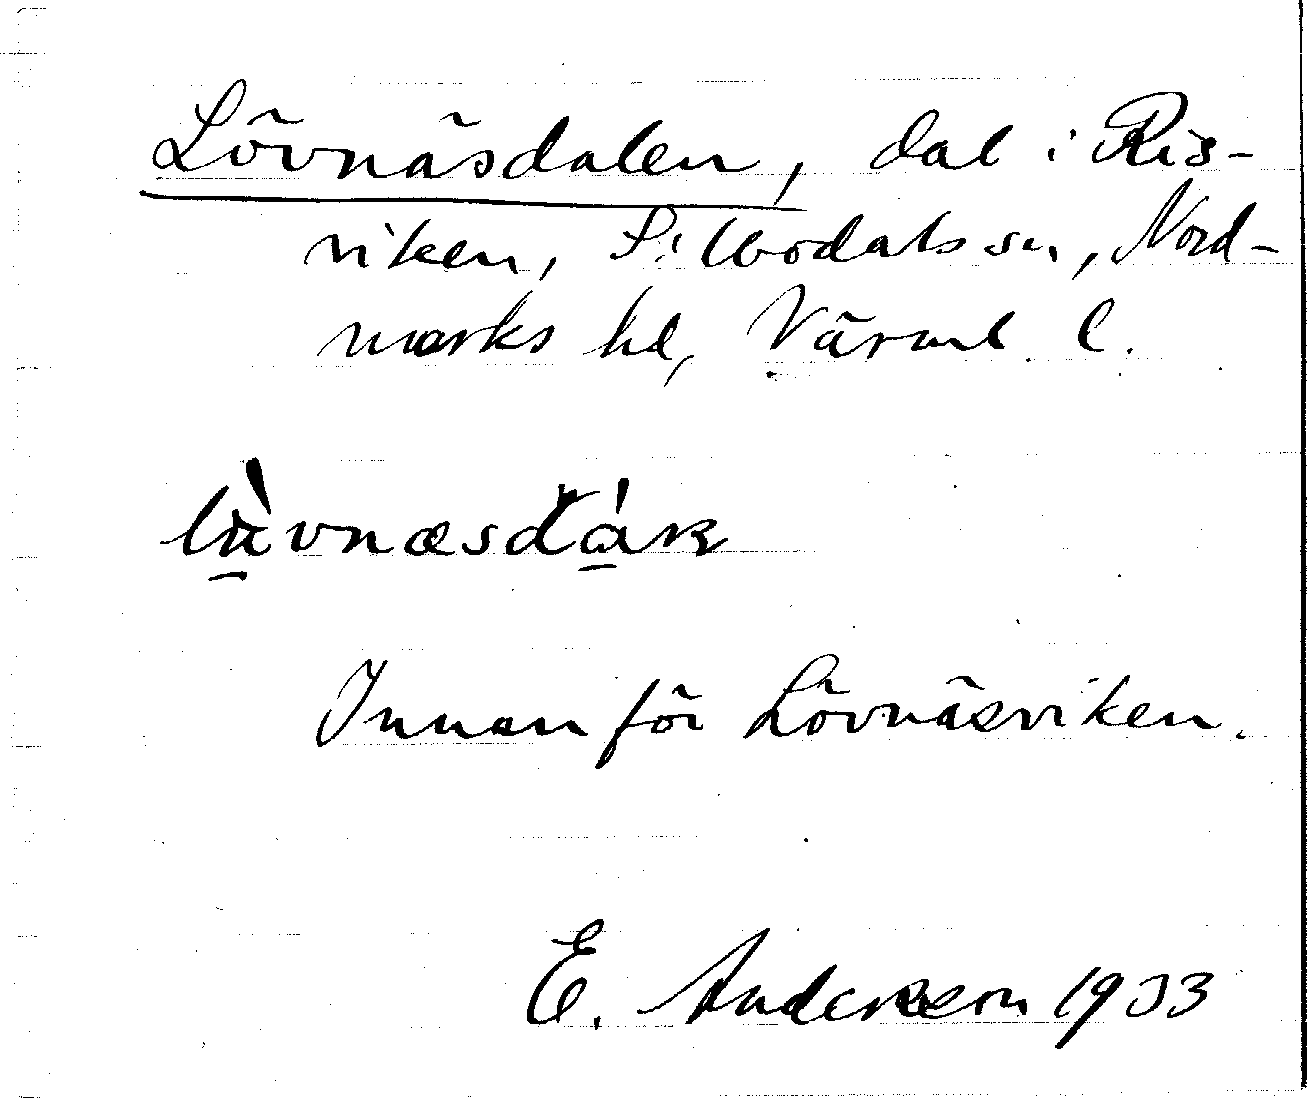 Lövnäsdalen, dal i Ris-
viken, Silbodals sn, Nord-
marks hd, Värml. l.
Innanför Lövnäsviken.
E. Andersson 1933